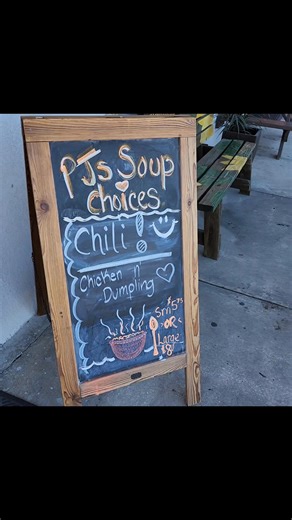 PJs Soup
Choices
Chili!
Chicken n'
Dumpling
Sm $5
-OR-
Large
$8